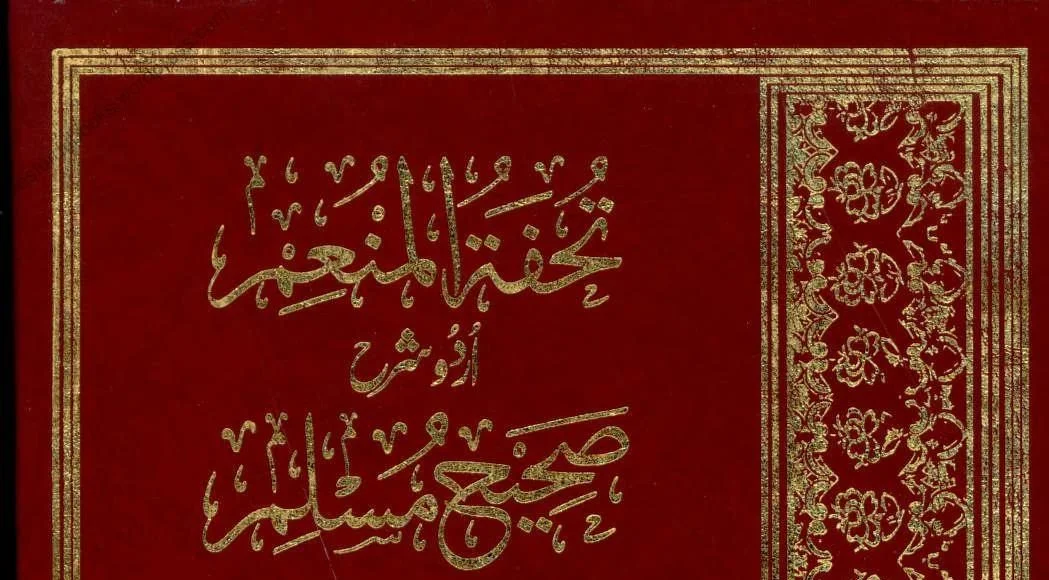 تحفۃ المنعم
اردو شرح
صحیح مسلم